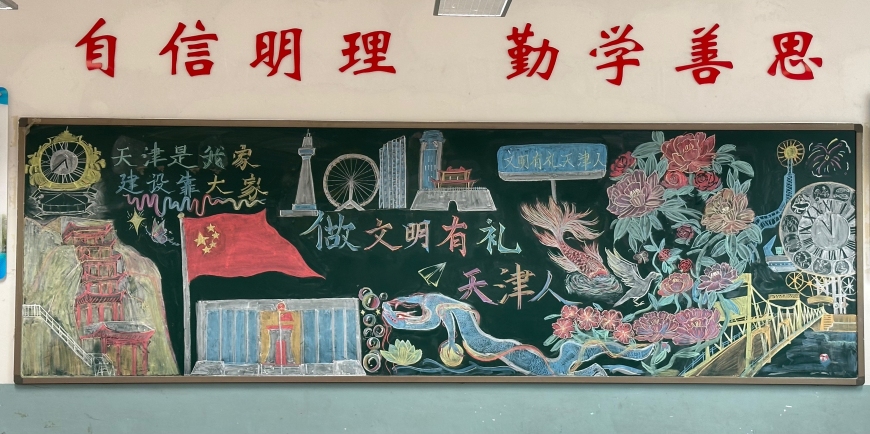 自信明理 勤学善思
天津是我家
建设靠大家
文明有礼天津人
做文明有礼
天津人